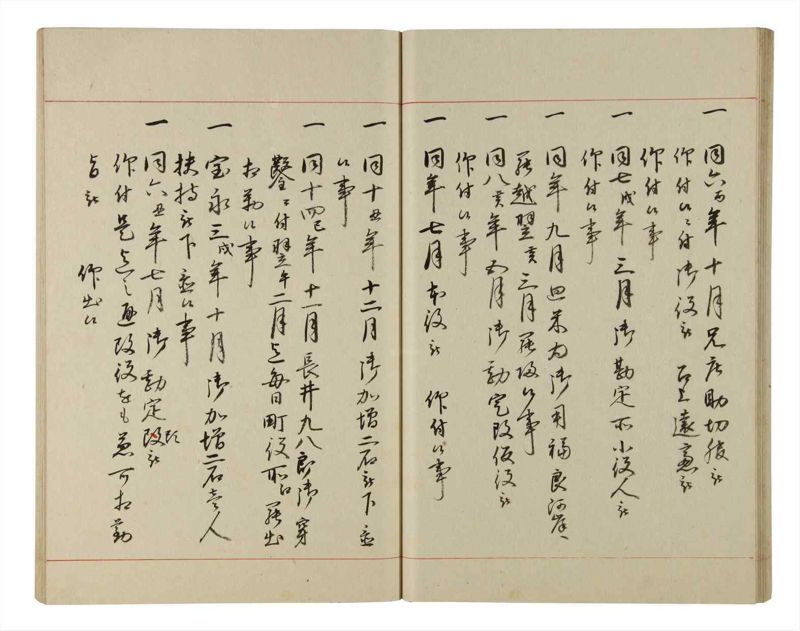 一 同六丙年十月兄庄助切腹被
仰付候ニ付御役被 召上遠慮被
仰付候事
一 同七戌年三月御勘定所小役人被
仰付候事
一 同年九月 米為御用福良
罷越翌亥三月罷帰候事
一 同八亥年五月御勘定改仮役被
仰付候事
一 同年七月本役被 仰付候事
一 同十丑年十二月御加増二石被下置
候事
一 同十四巳年十一月長井九八郎御穿
鑿ニ付翌午二月迄毎日町役所江罷出
相勤候事
一 宝永三戌年十月御加増二石壱人
扶持被下置候事
一 同六丑年七月御勘定改被
仰付是迄之通改役をも兼可相勤
旨被 仰出候